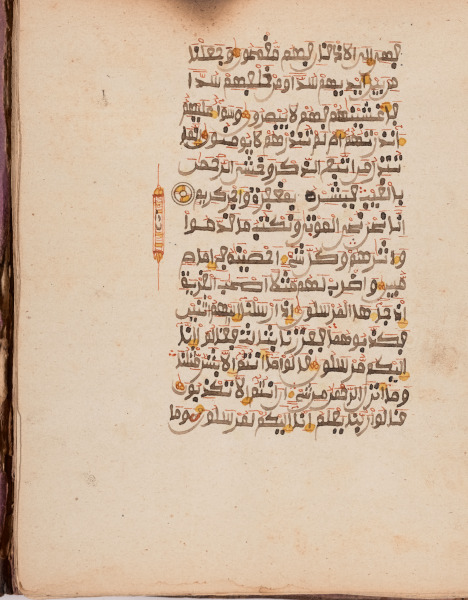 فهى الى الاذقان فهم مقمحون وجعلنا
من بين ايديهم سدا ومن خلفهم سدا
فاغشينهم فهم لا يبصرون وسواء عليهم
ءانذرتهم ام لم تنذرهم لا يومنون انما
تنذر من اتبع الذكر وخشي الرحمن
بالغيب فبشره بمغفرة واجر كريم
انا نحن نحي الموتى ونكتب ما قدموا
وءاثرهم وكل شيء احصينه في امام
مبين واضرب لهم مثلا اصحب القرية
اذ جاءها المرسلون اذ ارسلنا اليهم اثنين
فكذبوهما فعززنا بثالث فقالوا انا
اليكم مرسلون قالوا ما انتم الا بشر مثلنا
وما انزل الرحمن من شيء ان انتم الا تكذبون
قالوا ربنا يعلم انا اليكم لمرسلون وما